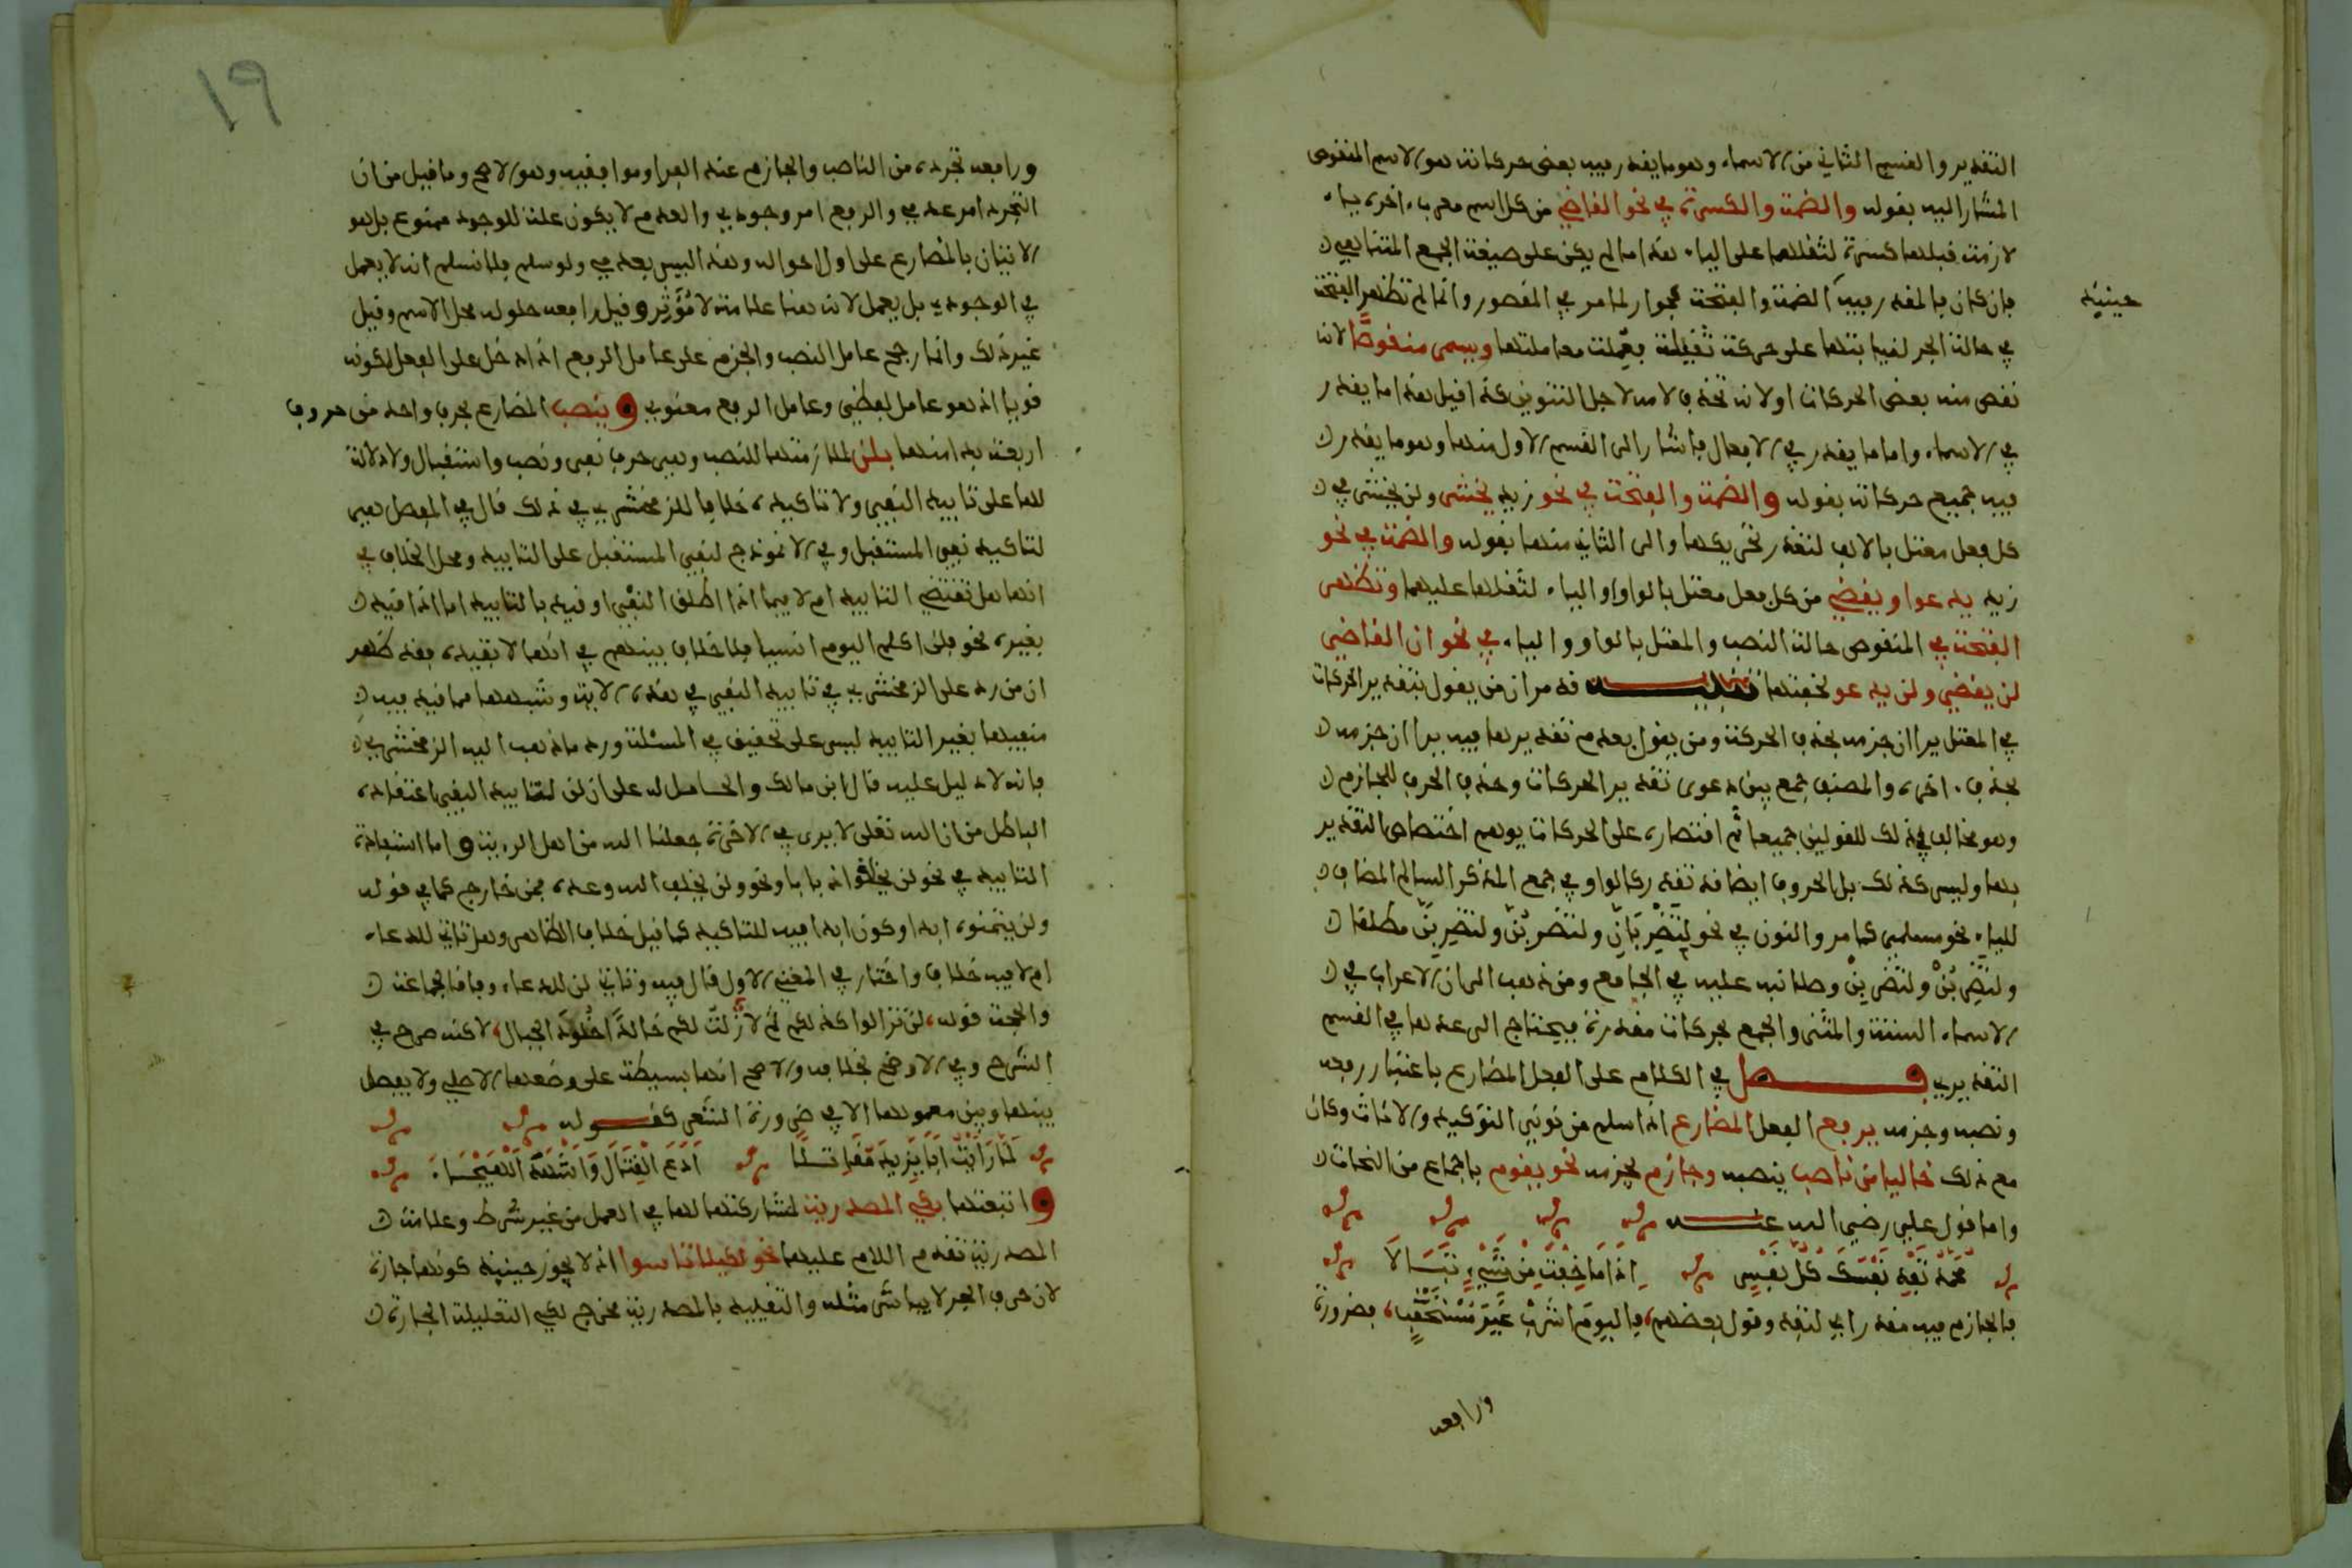 التقدير والقسم الثاني من الاسماء وهو ما يقدر فيه بعض حركاته هو الاسم المنقوص
المشار اليه بقوله والضمة والكسرة في نحو القاضي من كل اسم معرب اخره ياء
لازمة قبلها كسرة لثقلهما على الياء هذا ما لم يكن على صيغة الجمع المتناهي
فان كان فالمقدر فيه الضمة والفتحة كجوار لما مر في المقصور وانما لم تظهر الفتحة
حينئذ
في حالة الجر لنيابتها على حركة ثقيلة فعملت معاملتها ويسمى منقوصًا لانه
نقص منه بعض الحركات او لانه تحذف لامه لاجل التنوين كذا قيل هذا ما يقدر
في الاسماء واما ما يقدر في الافعال فاشار الى القسم الاول منها وهو ما يقدر
فيه جميع حركاته بقوله والضمة والفتحة في نحو زيد يخشى ولن يخشى في
كل فعل معتل بالالف لتعذر تحريكها والى الثاني منها بقوله والضمة في نحو
زيد يدعو او يقضي من كل فعل معتل بالواو او الياء لثقلها عليهما وتظهر
الفتحة في المنقوص حالة النصب والمعتل بالواو والياء في نحو ان القاضي
لن يقضي ولن يدعو لخفتها تنبيه قد مر ان من يقول بتقدير الحركات
في المعتل يرا ان جزمه بحذف الحركة ومن يقول بعدم تقديرها فيه يرا ان جزمه
بحذف اخره والمصنف جمع بين دعوى تقدير الحركات وحذف الحرف للجازم
وهو مخالف في ذلك للقولين جميعا ثم اقتصاره على الحركات يوهم اختصاص التقدير
بها وليس كذلك بل الحروف ايضا قد تقدر كالواو في جمع المذكر السالم المضاف
للياء نحو مسلمي كما مر والنون في نحو لتضربَانِّ ولتضربُنَّ ولتضربِنَّ مطلقا
ولتضربُنْ ولتضربِنْ وصلا نبه عليه في الجامع ومن ذهب الى ان الاعراب في
الاسماء الستة والمثنى والجمع بحركات مقدرة فيحتاج الى عدها في القسم
التقديري فصل في الكلام على الفعل المضارع باعتبار رفعه
ونصبه وجزمه يرفع الفعل المضارع اذا سلم من نوني التوكيد والاناث وكان
مع ذلك خاليا من ناصب ينصبه وجازم يجزمه نحو يقوم باجماع من النحات
واما قول علي رضي الله عنه
مُحَمَّدُ تَفْدِ نَفْسَكَ كُلُّ نَفْسٍ اِذَا مَا خِفْتَ مِنْ شَيْءٍ تَبَالَا
فالجازم فيه مقدر اي لتفد وقول بعضهم فاليوم اشربْ غيرَ مُسْتَحْقِبٍ، فضرورة
ورافعه
١٩
ورافعه تجرده من الناصب والجازم عند الفراوموافقيه وهو الاصح وما قيل من ان
التجرد امر عدمي والرفع امر وجودي والعدم لا يكون علة للوجود ممنوع بل هو
الاتيان بالمضارع على اول احواله وهذا ليس بعدمي ولو سلم فلا نسلم انه لا يعمل
في الوجودي بل يعمل لانه هنا علامة لا مُؤَثِر وقيل رافعه حلوله محل الاسم وقيل
غير ذلك وانما رجح عامل النصب والجزم على عامل الرفع اذا دخل على الفعل لكونه
قويا اذ هو عامل لفظي وعامل الرفع معنوي وينصب المضارع بحرف واحد من حروف
اربعة بدا منها بلن لملازمتها للنصب وهي حرف نفي ونصب واستقبال ولا دلالة
لها على تابيد النفي ولا تاكيده خلافا للزمخشري في ذلك قال في المفصل هي
لتاكيد نفي المستقبل وفي الانموذج لنفي المستقبل على التابيد ومحل الخلاف في
انها هل تقتضي التابيد ام لا فيما اذا اطلق النفي او قيد بالتابيد اما اذا قيد
بغيره نحو فلن اكلم اليوم انسيا فلا خلاف بينهم في انها لا تفيده فقد ظهر
ان من رد على الزمخشري في تابيد النفي في هذه الاية وشبهها مما قيد فيه
منفيها بغير التابيد ليس على تحقيق في المسئلة ورد ما ذهب اليه الزمخشري
بانه لا دليل عليه قال ابن مالك والحامل له على ان لن لتابيد النفي اعتقاده
الباطل من ان الله تعلى لا يرى في الاخرة جعلنا الله من اهل الروية واما استفادة
التابيد في نحو لن يخلقوا ذبابا ونحو ولن يخلف الله وعده فمن خارج كما في قوله
ولن يتمنوه ابدا وكون ابدا فيه للتاكيد كما قيل خلاف الظاهر وهل تاتي للدعاء
ام لا فيه خلاف واختار في المغني الاول قال فيه وتاتي لن للدعاء وفاقا لجماعة
والحجة قوله، لن تزالوا كذلكم ثم لا زلتُ لكم خالدًا خلودَ الجبال، لاكنه صرح في
الشرح وفي الاوضح بخلافه والاصح انها بسيطة على وضعها الاصلي ولا يفصل
بينها وبين معمولها الا في ضرورة الشعر كقوله
لَمَّا رَاَيْتُ اَبَا يَزِيدَ مُقَاتِلًا اَدَعَ الْقِتَالَ وَاَشْهَدَ الْهَيْجَاءَ
واتبعتها بكي المصدرية لمشاركتها لها في العمل من غير شرط وعلامة
المصدرية تقدم اللام عليها نحو لكيلا تاسوا اذ لا يجوز حينئذ كونها جارة
لان حرف الجر لا يباشر مثله والتقييد بالمصدرية مخرج لكي التعليلية الجارة